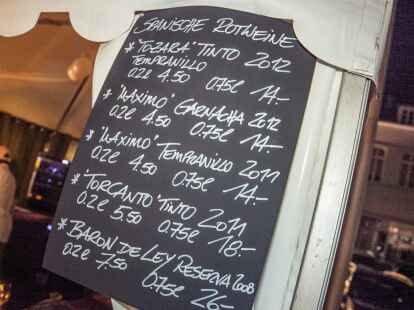 SPANISCHE ROTWEINE
* "TOZARA" TINTO 2012
TEMPRANILLO
0.2l 4.50 0.75l 14.-
* "MAXIMO" GARNACHA 2012
0.2l 4.50 0.75l 14.-
* "MAXIMO" TEMPRANILLO 2011
0.2l 4.50 0.75l 14.-
* "TORCANTO" TINTO 2011
0.2l 5.50 0.75l 18.-
* BARON DE LEY RESERVA 2008
0.2l 7.50 0.75l 26.-